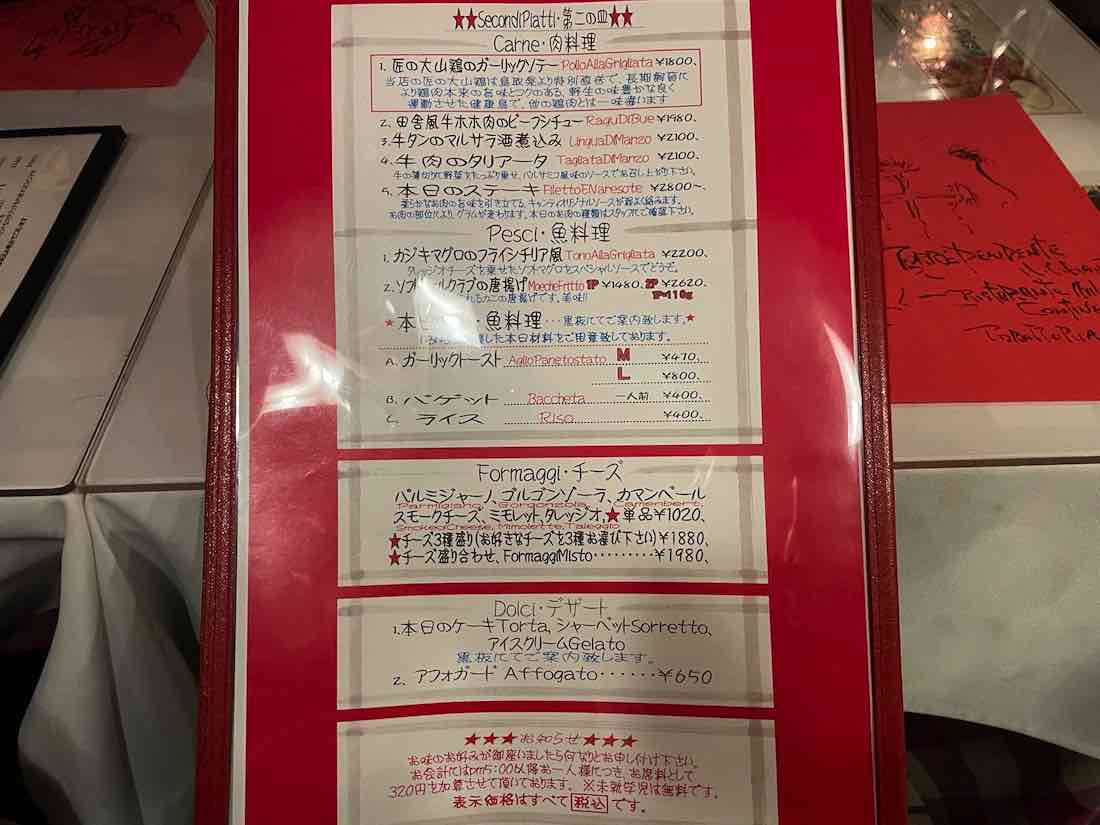 ★★SecondiPiatti・第二の皿★★
Carne・肉料理
1. 匠の大山鶏のガーリックソテーPolloAllaGrigliata ¥1800、
当店の匠の大山鶏は鳥取県より特別直送で、長期飼育に
より鶏肉本来の旨味とコクのある、野生の味豊かな良く
運動させた健康鳥で、他の鶏肉とは一味違います
2. 田舎風牛ホホ肉のビーフシチューRaguDiBue ¥1980、
3. 牛タンのマルサラ酒煮込み LinguaDiManzo ¥2100、
4. 牛肉のタリアータ TagliataDiManzo ¥2100、
牛の薄切りに野菜をたっぷり乗せ、バルサミコ風味のソースでお召し上がり下さい。
5. 本日のステーキFilettoENaresote ¥2800〜、
柔らかなお肉の旨味を引き立てる、キャンティオリジナルソースが程よく絡みます。
お肉の部位により、グラムが変わります。本日のお肉の種類はスタッフにご確認下さい。
Pesci・魚料理
1. カジキマグロのフライシチリア風 TonoAllaGrigliata ¥2200、
タレッジオチーズを乗せたソフトマグロをスペシャルソースでどうぞ。
2. ソフト ルクラブの唐揚げMoecheFritto 1P¥1480、2P¥2620、
れるカニの唐揚げです。美味!! 1P=110g
★本日 ・魚料理・・・黒板にてご案内致します。★
した本日材料をご用意致しております。
A. ガーリックトースト AglioPanetostato M ¥470、
L ¥800、
B. バゲット Baccheta 一人前 ¥400、
C. ライス Riso ¥400、
Formaggi・チーズ
パルミジャーノ、ゴルゴンゾーラ、カマンベール
Parmigiano, Gorgonzola, Camenbert
スモークチーズ、ミモレット、タレッジオ、★単品¥1020、
SmokedCheese, Mimolette, Taleggio
★チーズ3種盛り(お好きなチーズを3種お選び下さい)¥1880、
★チーズ盛り合わせ、FormaggiMisto・・・・・・・・・¥1980、
Dolci・デザート
1. 本日のケーキTorta, シャーベットSorretto、
アイスクリームGelato
黒板にてご案内致します。
2. アフォガード Affogato・・・・・・¥650
★★★お知らせ★★★
お味のお好みが御座いましたら何なりとお申し付け下さい。
お会計にはpm5:00以降お一人様につき、お席料として
320円を加算させて頂いております。※未就学児は無料です。
表示価格はすべて税込です。